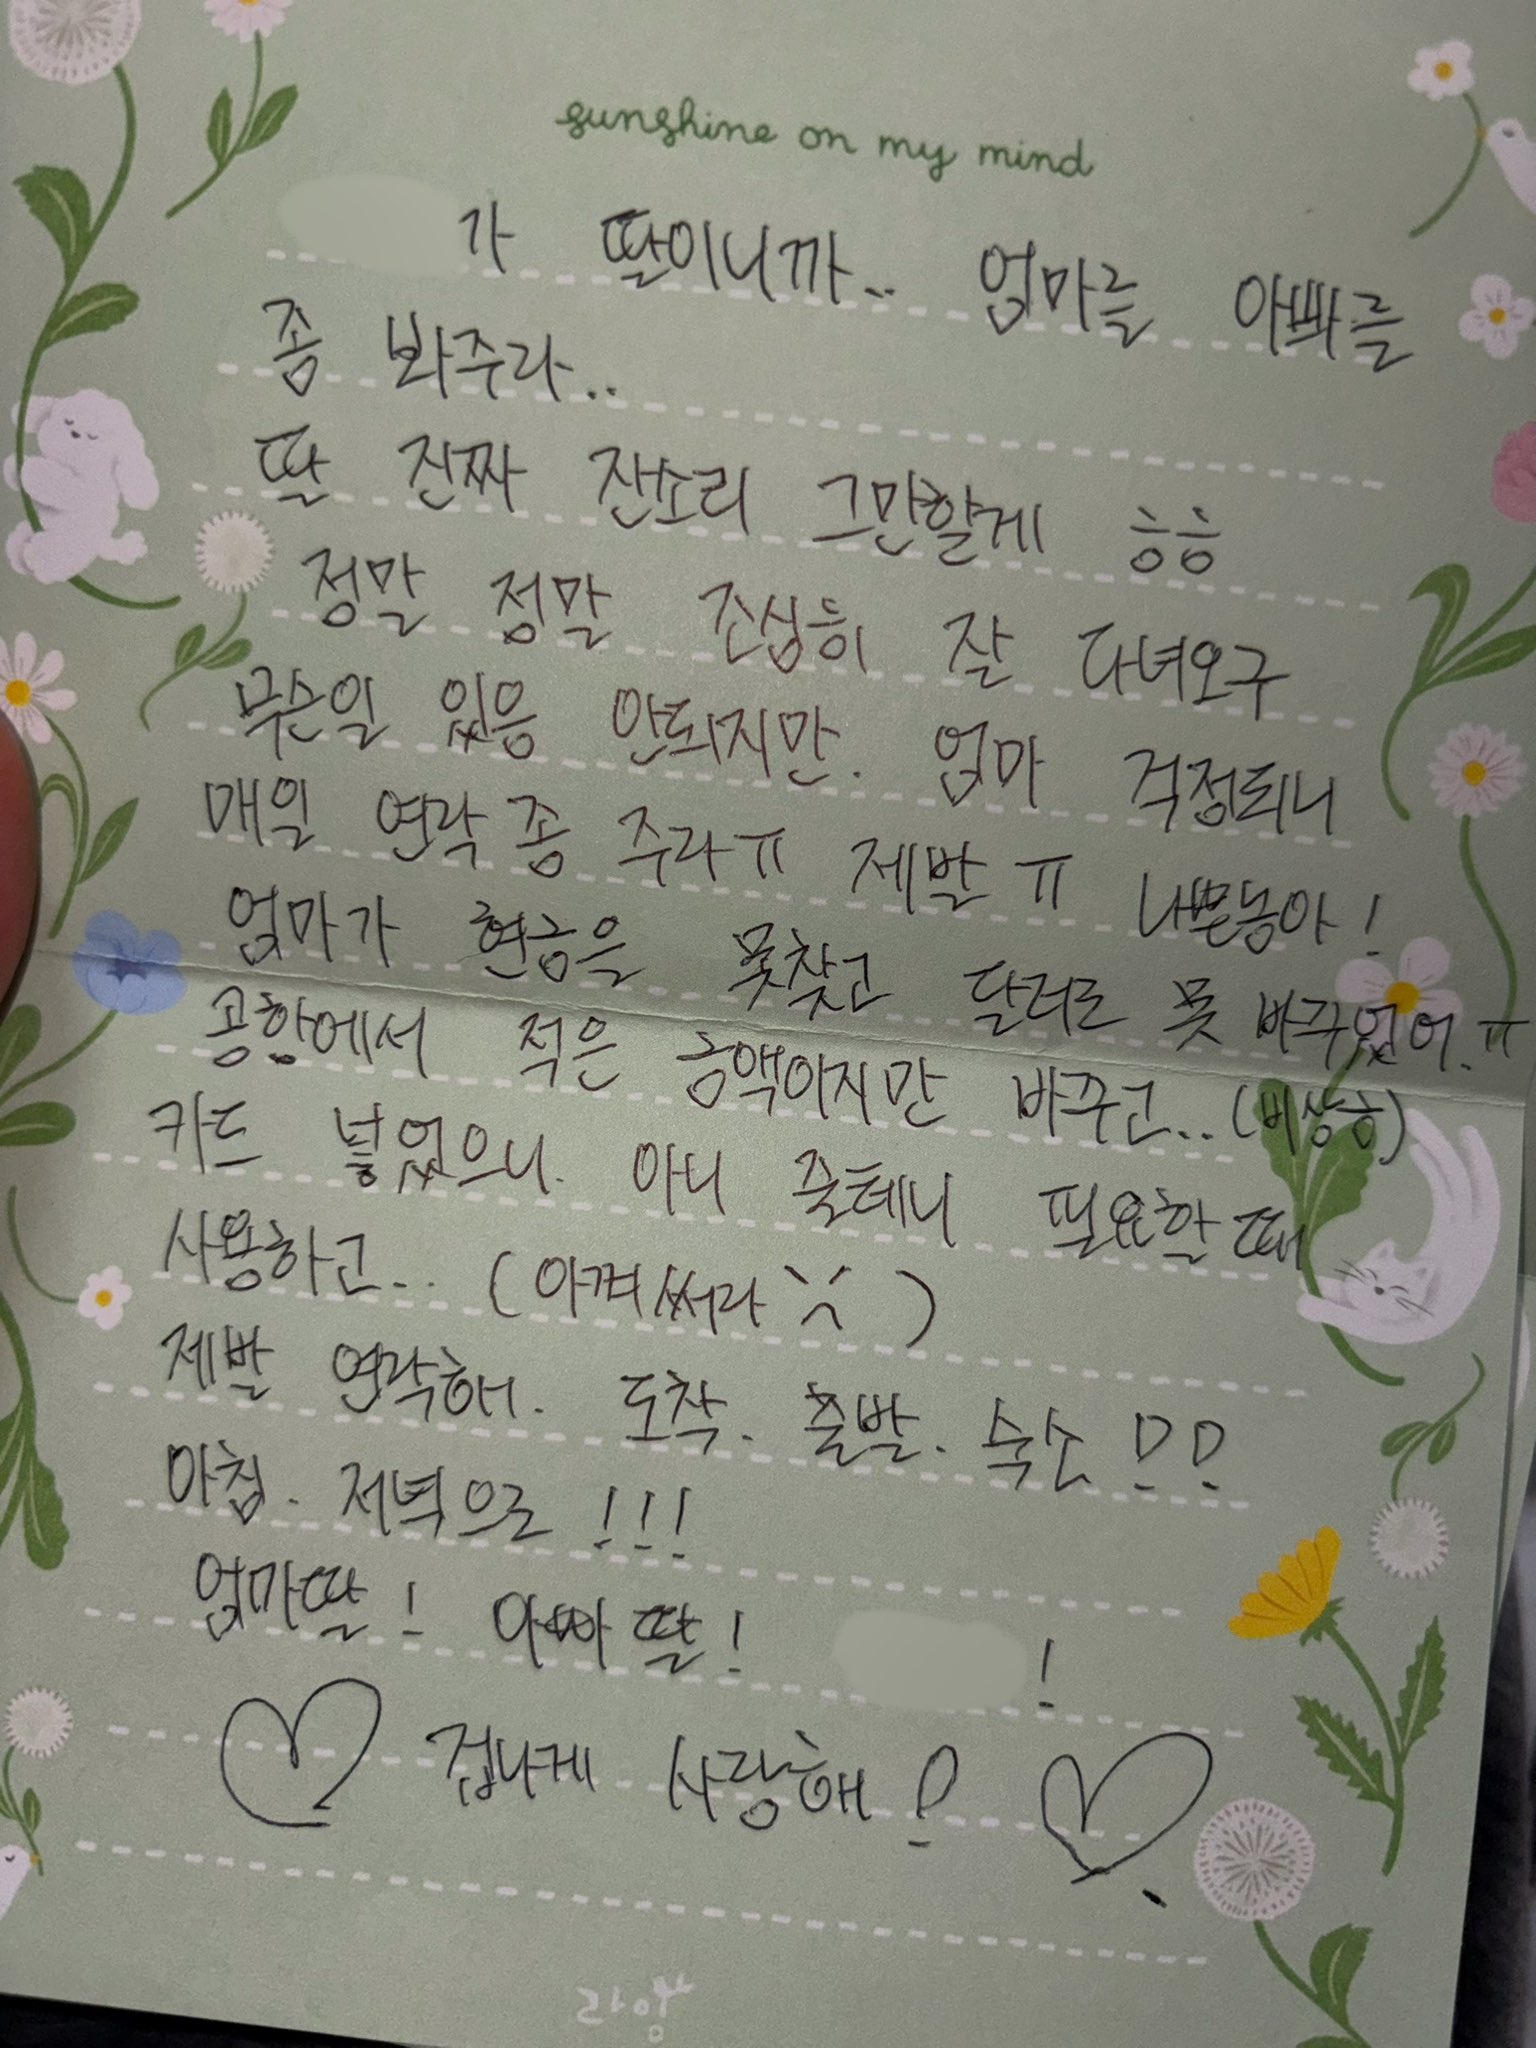 sunshine on my mind
가 딸이니까.. 엄마를 아빠를
좀 봐주라..
딸 진짜 잔소리 그만할게 흥흥
정말 정말 조심히 잘 다녀오구
무슨일 있음 안되지만. 엄마 걱정되니
매일 연락 좀 주라ㅠ 제발ㅠ 나쁜놈아!
엄마가 현금을 못찾고 달러로 못 바꾸었어.ㅠ
공항에서 적은 금액이지만 바꾸고..(비상금)
카드 넣었으니. 아니 줄테니 필요할때
사용하고.. (아껴써라 )
제발 연락해. 도착. 출발. 숙소!!
아침. 저녁으로 !!!
엄마딸! 아빠딸! !
겁나게 사랑해!